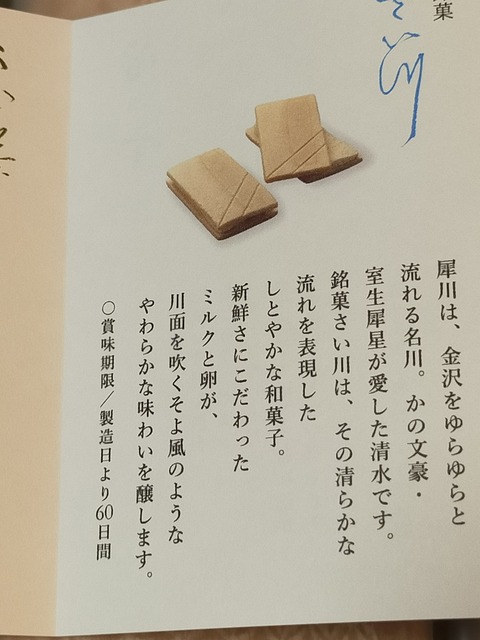 菓
さい川
犀川は、金沢をゆらゆらと
流れる名川。かの文豪・
室生犀星が愛した清水です。
銘菓さい川は、その清らかな
流れを表現した
しとやかな和菓子。
新鮮さにこだわった
ミルクと卵が、
川面を吹くそよ風のような
やわらかな味わいを醸します。
○賞味期限／製造日より60日間